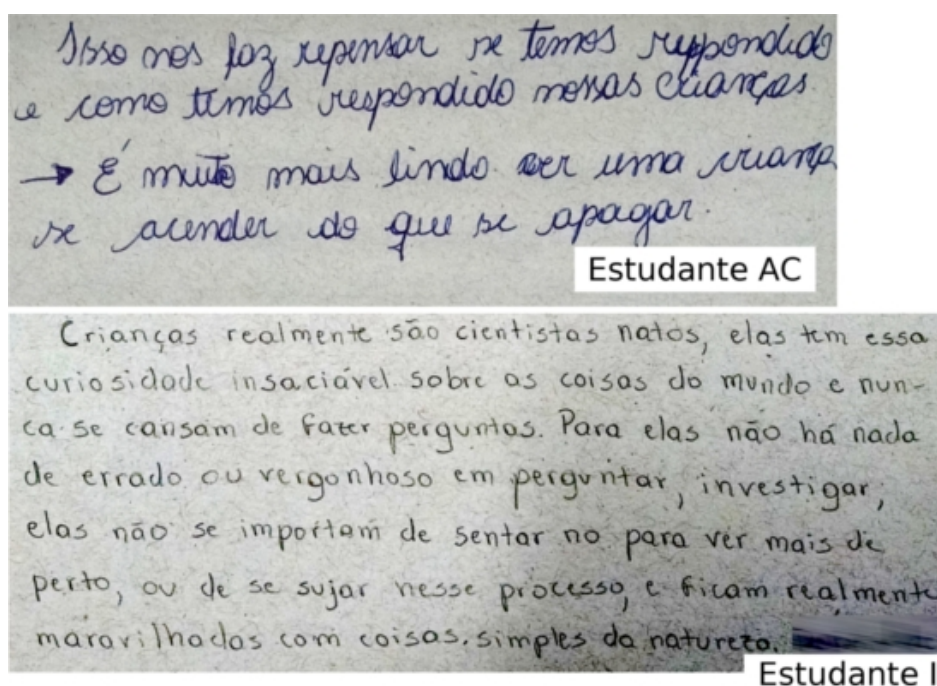 Isso nos faz repensar se temos respondido
e como temos respondido nossas crianças.
→ É muito mais lindo ver uma criança
se acender do que se apagar.
Estudante AC
Crianças realmente são cientistas natos, elas tem essa
curiosidade insaciável sobre as coisas do mundo e nun-
ca se cansam de fazer perguntas. Para elas não há nada
de errado ou vergonhoso em perguntar, investigar,
elas não se importam de sentar no para ver mais de
perto, ou de se sujar nesse processo, e ficam realmente
maravilhadas com coisas simples da natureza.
Estudante I